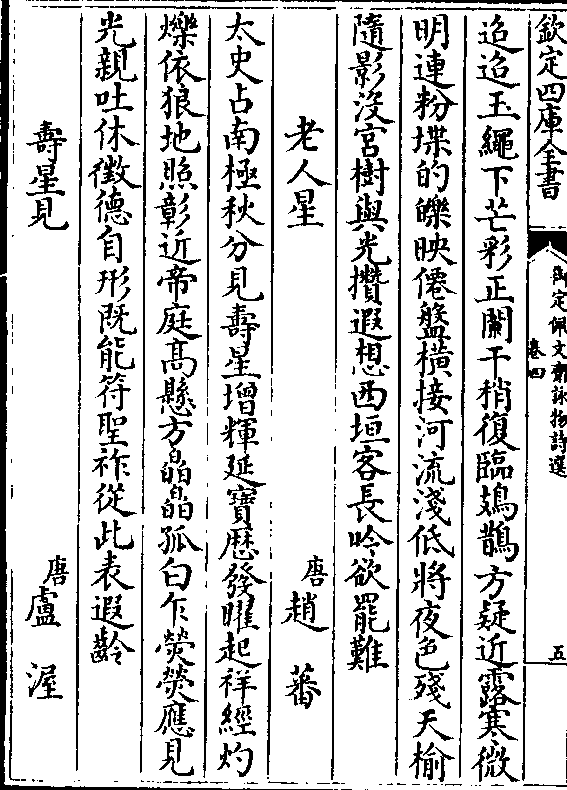 欽定四庫全書
御定佩文齋詠物詩選
卷四
五
迢迢玉繩下芒彩正闌干稍復臨鳷鵲方疑近露寒微
明連粉堞的皪映僊盤橫接河流淺低將夜色殘天榆
隨影沒宮樹與光攢遐想西垣客長吟欲罷難
老人星
唐趙蕃
太史占南極秋分見壽星增輝延寶厯發曜起祥經灼
爍依狼地照彰近帝庭髙懸方皛皛孤白乍熒熒應見
光親吐休徵德自形既能符聖祚從此表遐齡
壽星見
唐盧渥